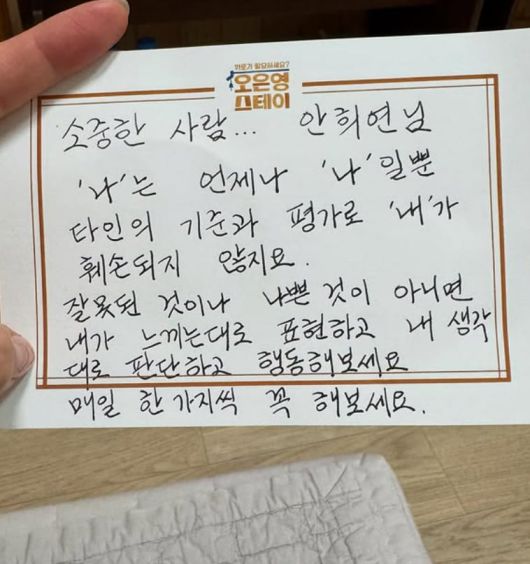 위로가 필요하세요?
오은영
스테이
소중한 사람... 안희연님
'나'는 언제나 '나'일뿐
타인의 기준과 평가로 '내'가
훼손되지 않지요.
잘못된 것이나 나쁜 것이 아니면
내가 느끼는대로 표현하고 내 생각
대로 판단하고 행동해보세요
매일 한 가지씩 꼭 해보세요.